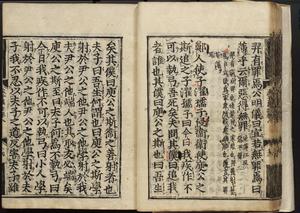 羿有罪焉公明儀曰宜若無罪焉曰
薄乎云爾惡得無罪
鄭人使子濯孺子侵衛衛使庾公之
斯追之子濯孺子曰今日我疾作不
可以執弓吾死矣夫問其僕曰追我
者誰也其僕曰庾公之斯也曰吾生
矣其僕曰庾公之斯衛之善射者也
夫子曰吾生何謂也曰庾公之斯學
射於尹公之他尹公之他學射於我
夫尹公之他端人也其取友必端矣
庾公之斯至曰夫子何為不執弓曰
今日我疾作不可以執弓曰小人學
射於尹公之他尹公之他學射於夫
子我不忍以夫子之道反害夫子雖